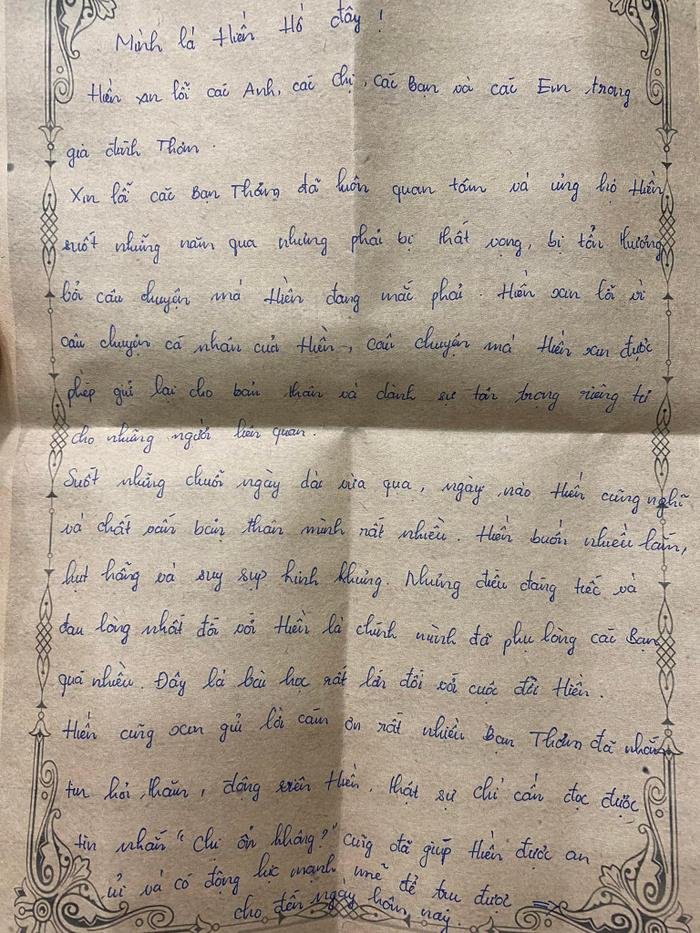 Mình là Hiền Hồ đây !
Hiền xin lỗi các Anh, các chị, các Bạn và các Em trong
gia đình Thơm.
Xin lỗi các Bạn Thơm đã luôn quan tâm và ủng hộ Hiền
suốt những năm qua nhưng phải bị thất vọng, bị tổn thương
bởi câu chuyện mà Hiền đang mắc phải. Hiền xin lỗi vì
câu chuyện cá nhân của Hiền, câu chuyện mà Hiền xin được
phép giữ lại cho bản thân và dành sự tôn trọng riêng tư
cho những người liên quan.
Suốt những chuỗi ngày dài vừa qua, ngày nào Hiền cũng nghĩ
và chất vấn bản thân mình rất nhiều. Hiền buồn nhiều lắm,
hụt hẫng và suy sụp kinh khủng. Nhưng điều đáng tiếc và
đau lòng nhất đối với Hiền là chính mình đã phụ lòng các Bạn
quá nhiều. Đây là bài học rất lớn đối với cuộc đời Hiền.
Hiền cũng xin gửi lời cảm ơn rất nhiều Bạn Thơm đã nhắn
tin hỏi thăm, động viên Hiền. Thật sự chỉ cần đọc được
tin nhắn "Chị ổn không?" cũng đã giúp Hiền được an
ủi và có động lực mạnh mẽ để trụ được
cho đến ngày hôm nay.